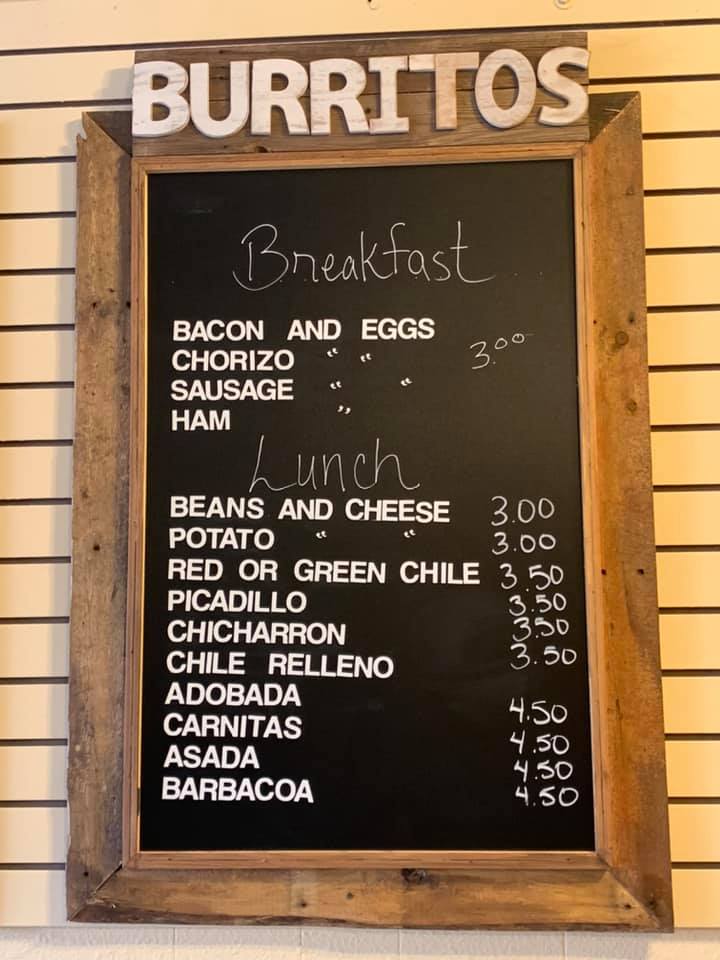 BURRITOS
Breakfast
BACON AND EGGS
CHORIZO " " 3.00
SAUSAGE " "
HAM "
Lunch
BEANS AND CHEESE 3.00
POTATO " " 3.00
RED OR GREEN CHILE 3.50
PICADILLO 3.50
CHICHARRON 3.50
CHILE RELLENO 3.50
ADOBADA 4.50
CARNITAS 4.50
ASADA 4.50
BARBACOA 4.50